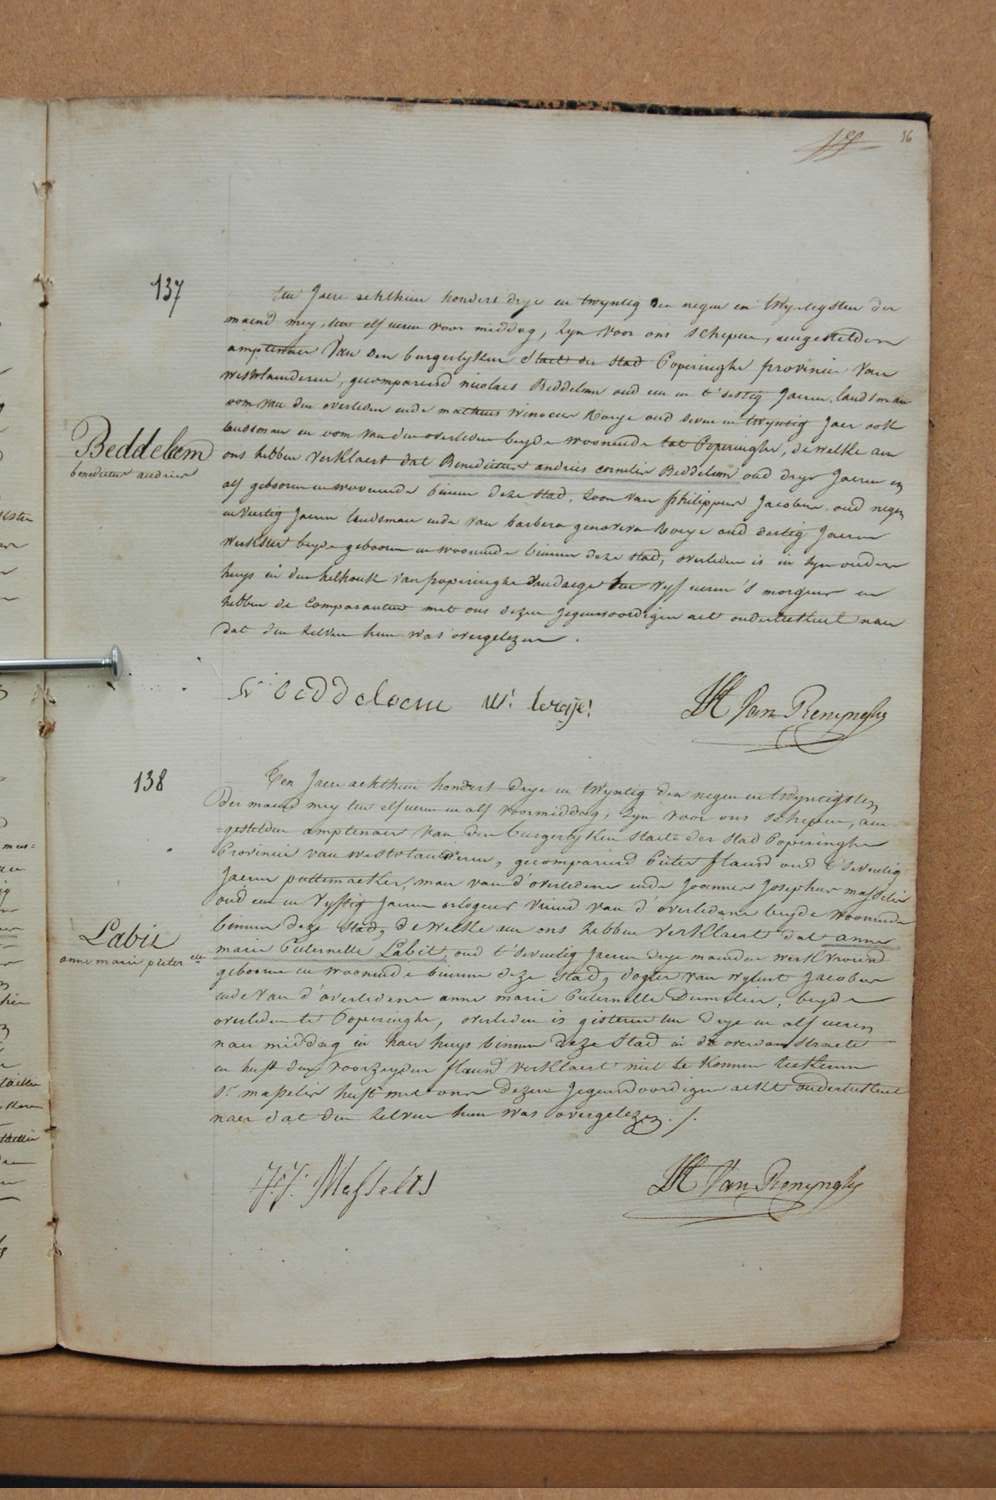 36
137
Ten Jaere achthien hondert drye en twyntig den negen en twyntigsten der
maend mey, ten elf uren voor middag, zyn voor ons schepen, aengestelden
amptenaer van den burgerlyken staet der stad Poperinghe provincie van
westvlaenderen, gecompareerd nicolaes Beddeleem oud een en t'sestig Jaeren, landsman
oom van den overleden ende matheus winocus Roeye oud seven en twyntig Jaer ook
landsman en oom van den overleden beyde woonende tot Poperinghe, de welke aen
Beddeleem
benedictus andries
ons hebben verklaert dat Benedictus andries cornelis Beddeleem oud drye Jaeren en
alf gebooren en woonende binnen deze stad, zoon van philippus Jacobus oud negen
en veertig Jaeren landsman ende van barbera genoveva Roeye oud dertig Jaeren
werkster beyde gebooren en woonende binnen deze stad, overleden is in zyn ouders
huys in den helhoek van poperinghe vandaege ten vyf ueren 's morgens en
hebben de Comparanten met ons dezen jegenwoordigen act onderteekent naer
dat den zelven hun was overgelezen.
N: beddeloem M: Roeije!
H Van Renynghe
138
Ten Jaere achthien hondert drye en twyntig den negen en twyntigsten
der maend mey ten elf ueren en alf voormiddag, zyn voor ons schepen, aen-
=gestelden amptenaer van den burgerlyken staet der stad Poperinghe
Provincie van westvlaenderen, gecompareerd Pieter flaund oud t'seventig
Jaeren puttemaeker, man van d'overledene ende Joannes Josephus masselis
oud een en vyftig Jaeren orlogeur vriend van d'overledene beyde woonende
Labit
anne marie pieter elle
binnen deze stad, de welke aen ons hebben verklaert dat anne
marie Pieternelle Labit, oud t'seventig Jaeren drye maenden werkvrouw
geboren en woonende binnen deze stad, dogter van wylent Jacobus
ende van d'overledene anne marie Pieternelle Dumelin, beyde
overleden te Poperinghe, overleden is gisteren ten drye en alf ueren
naer middag in haer huys binnen deze stad in de overdam straete
en heeft den voorzeyden flaund verklaert niet te konnen teekenen
S: masselis heeft met ons dezen jegenwoordigen ackt onderteekent
naer dat den zelven hun was overgelezen ./.
J:J: Masselis
H Van Renynghe